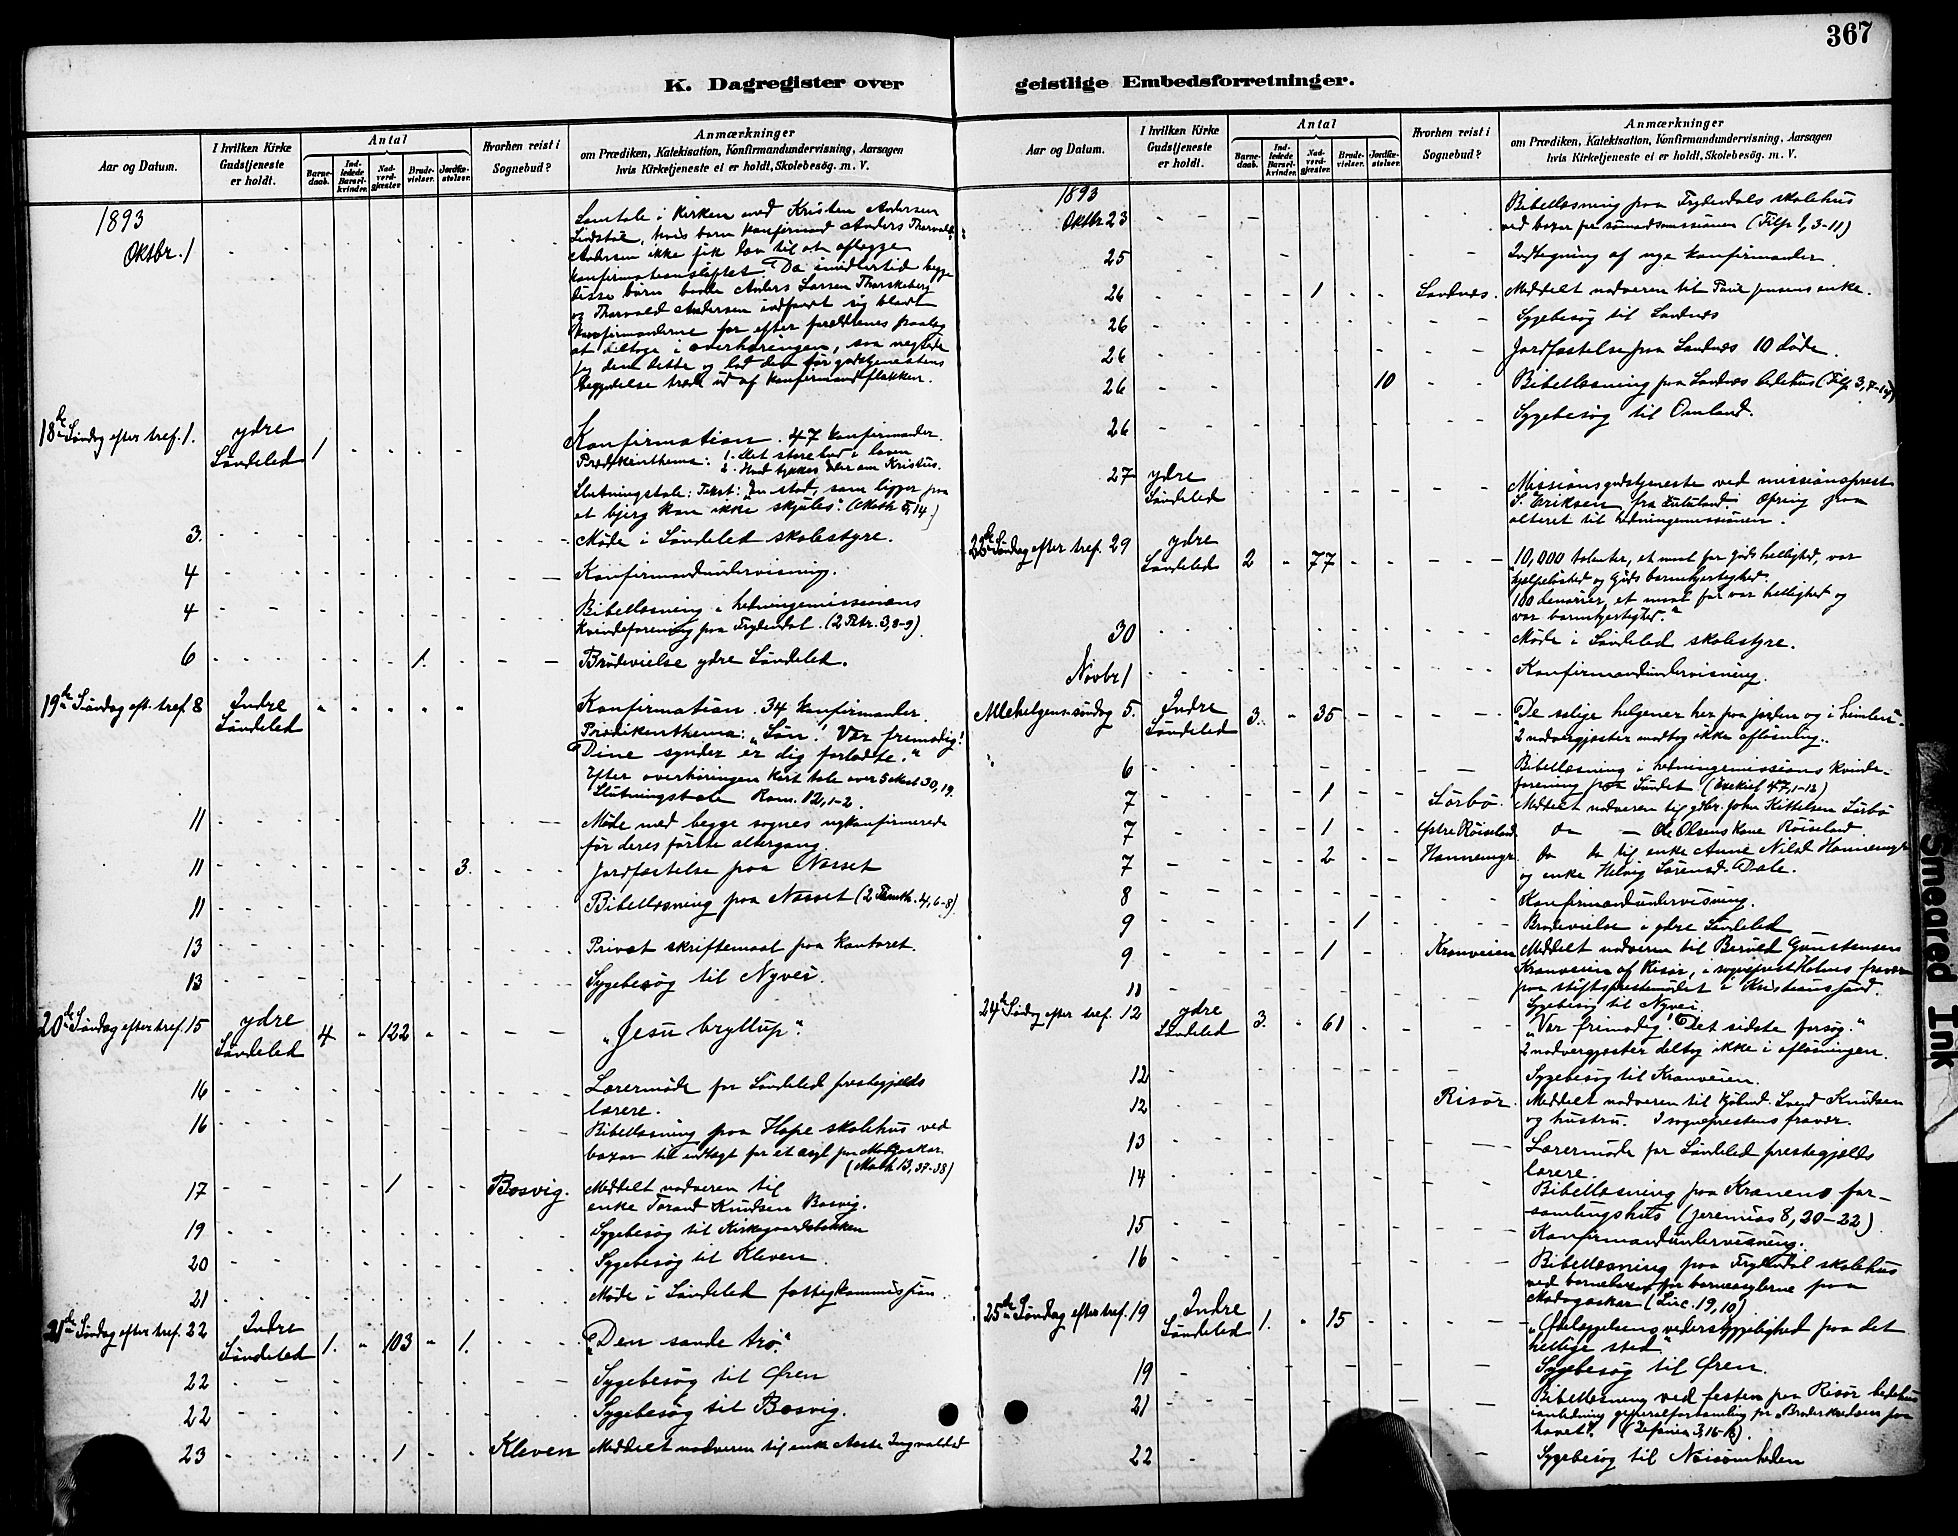 367
K. Dagregister over geistlige Embedsforretninger.
Aar og Datum.
I hvilken Kirke Gudstjeneste er holdt.
Antal
Barnedaab.
Indledede Barselkvinder.
Nadverdgjester.
Brudevielser.
Jordfæstelser.
Hvorhen reist i Sognebud?
Anmærkninger
om Prædiken, Katekisation, Konfirmandundervisning, Aarsagen
hvis Kirketjeneste ei er holdt, Skolebesøg. m. V.
1893
Oktbr. 1
Samtale i kirken med Kristen Andersen
Lindstøl, hvis barn konfirmand Anders Thorvald
Andersen ikke fik lov til at aflægge
konfirmationsløftet. Da imidlertid begge
disse børn baade Anders Larsen
og Thorvald Andersen indfandt sig blandt
konfirmanderne for efter forældrenes paalæg
at deltage i overhøringen, saa negtede
jeg dem dette og lod dem før gudstjenestens
begyndelse træde ud af konfirmandflokken.
18de Søndag efter tref. 1. ydre Søndeled 1 - - - -
Konfirmation. 47 konfirmander.
Prædikenthema: 1. Det store bud i loven
2. Hvad tykkes Eder om Kristus.
Slutningstale: Tekst: En stad, som ligger paa
et bjerg kan ikke skjules. (Math 5,14)
3. Møde i Søndeled skolestyre.
4 Konfirmandundervisning.
4 Bibellæsning i hedningemissionens
kvindeforening paa Frydendal. (2 Petr. 3,8-9)
6 - - - 1. - Brudevielse ydre Søndeled.
19de Søndag eft. tref. 8 Indre Søndeled - - - - -
Konfirmation. 34 konfirmander.
Prædikenthema: "Søn! Vær frimodig!
Dine synder er dig forladte."
Efter overhøringen kort tale over 5 Mos 30,19.
Slutningstale Rom. 12,1-2.
11 Møde med begge sognes nykonfirmerede
før deres første altergang.
11 - - - - 3. Jordfæstelse paa Narset
11 Bibellæsning paa Narset (2 Timoth. 4,6-8)
13 Privat skriftemaal paa kontoret.
13 Sygebesøg til Nyvei.
20de Søndag efter tref. 15 ydre Søndeled 4 - 122 - - "Jesu bryllup".
16 Lærermøde for Søndeled prestegjelds
lærere.
16 Bibellæsning paa Hope skolehus ved
bazar til indtægt for et asyl paa Madagaskar
(Math 13,37-38)
17 - - 1 - - Bosvig. Meddelt nadveren til
enke Torand Knudsen Bosvig.
19 Sygebesøg til Kirkegaardsbakken
20 Sygebesøg til Kleven
21 Møde i Søndeled fattigkommission
21de Søndag efter tref. 22 Indre Søndeled 1. - 103 - 1. "Den sande tro."
22 Sygebesøg til Øren
22 Sygebesøg til Bosvig.
23 - - 1 - - Kleven Meddelt nadveren til enke Aaste Ingvaldsd
Aar og Datum.
I hvilken Kirke Gudstjeneste er holdt.
Antal
Barnedaab.
Indledede Barselkvinder.
Nadverdgjester.
Brudevielser.
Jordfæstelser.
Hvorhen reist i Sognebud?
Anmærkninger
om Prædiken, Katekisation, Konfirmandundervisning, Aarsagen
hvis Kirketjeneste ei er holdt, Skolebesøg. m. V.
1893
Oktbr 23 Bibellæsning paa Frydendals skolehus
ved bazar for sømandsmissionen (Filip 1, 3-11)
25 Indtegning af nye konfirmander.
26 - - 1 - - Sandnæs. Meddelt nadveren til enke.
26 Sygebesøg til Sandnæs
26 Jordfæstelse paa Sandnæs 10 døde.
26 - - - - 10 Bibellæsning paa Sandnæs bedehus (Filip 3, 7-14)
26 Sygebesøg til Omland.
27 ydre Søndeled Missionsgudstjeneste ved missionsprest
S. Eriksen fra Zululand. Ofring paa
alteret til hedningemissionen.
22de Søndag efter tref. 29 ydre Søndeled 2 - 77 - -
"10,000 talenter, et maal for Guds hellighed, vor
hjælpeløshed og Guds barmhjertighed.
100 denarier, et maal for vor hellighed og
vor barmhjertighed."
30 Møde i Søndeled skolestyre.
Novbr 1 Konfirmandundervisning.
Allehelgens-søndag 5. Indre Søndeled 3. - 35 - -
"De salige helgener her paa jorden og i himlen".
2 nadvergjæster modtog ikke afløsning.
6 Bibellæsning i hedningemissions kvinde-
forening paa Sundet (Ezekiel 47,1-12)
7 - - 1 - - Sørbø. Meddelt nadveren til gdbr. John Kittelsen Sørbø
7 - - 1 - - Østre Røiseland do — Ole Olsens kone Røiseland.
7 - - 2 - - Hannemyr. do do til enke Anne Nilsd Hannemyr
og enke Helvig Sørensd. Dale.
8 Konfirmandundervisning.
9 - - - 1 - Brudevielse i ydre Søndeled
9 - - 1 - - Kranveien Meddelt nadveren til Beruld Gunstensen
Kranveien af Risør, i sogneprest Holms fravær
paa stiftsprestemødet i Kristianssand.
11 Sygebesøg til Nyvei.
24de Søndag efter tref. 12 ydre Søndeled 3. - 61 - -
"Vær frimodig! Det sidste forsøg."
2 nadvergjæster deltog ikke i afløsningen.
12 Sygebesøg til Kranveien.
12 Risør. Meddelt nadveren til Svend Knudsen
og hustru. I sogneprestens fravær.
13 Lærermøde for Søndeled prestegjelds
lærere.
14 Bibellæsning paa Kranens for-
samlingshus (Jeremias 8, 20-22)
15 Konfirmandundervisning.
16 Bibellæsning paa Frydendal skolehus
ved barnebazar for barneasylerne paa
Madagaskar (Luc. 19,10)
25de Søndag efter tref. 19 Indre Søndeled 1. - 15 - -
"Ødelæggelsens vederstyggelighed paa det
hellige sted."
19 Sygebesøg til Øren.
21 Bibellæsning ved festen paa Risør bedehus
i anledning generalforsamling for "Broderkredsen paa
havet". (Zefania 3,16-18)
22 Sygebesøg til Nøisomheden
Smeared Ink